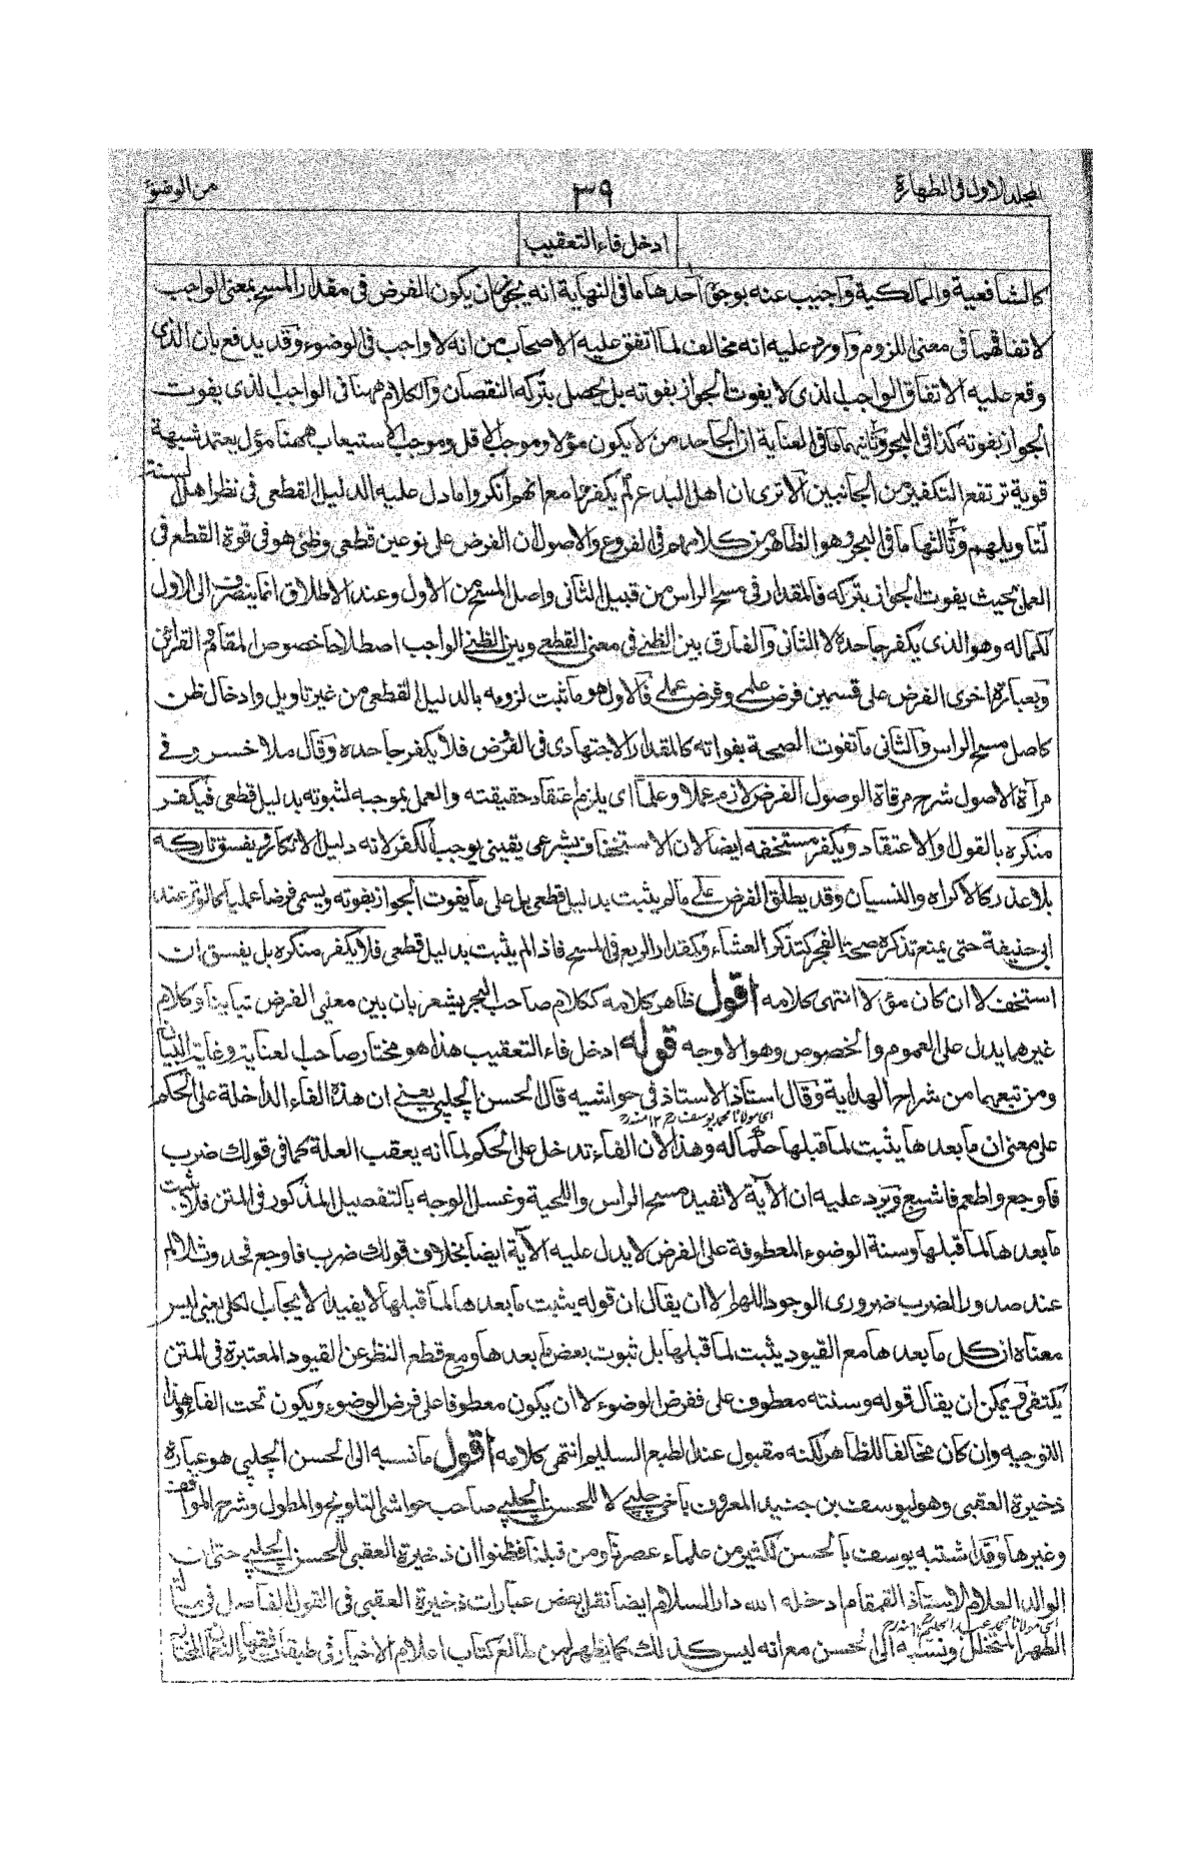 المجلد الاول فى الطهارة
٣٩
من الوضوء
ادخل فاء التعقيب
كالشافعية والمالكية وأجيب عنه بوجوه أحدها ما فى النهاية انه يجوز ان يكون الفرض فى مقدار المسح بمعنى الواجب
لاتفاقهما فى معنى اللزوم وأورد عليه انه مخالف لما اتفق عليه الاصحاب من انه لا واجب فى الوضوء وقد يدفع بان الذى
وقع عليه الاتفاق الواجب الذى لا يفوت الجواز بفوته بل يحصل بتركه النقصان والكلام ههنا فى الواجب الذى يفوت
الجواز بفوته كذا فى البحر وثانيهما ما فى العناية ان الجاحد من لا يكون مؤلا وموجب الاقل وموجب الاستيعاب ههنا مؤل يعتمد شبهة
قوية ترتفع التكفير من الجانبين ألا ترى ان اهل البدع لم يكفروا مع انهم انكروا ما دل عليه الدليل القطعى فى نظر اهل السنة
لتاويلهم وثالثها ما فى البحر وهو الظاهر من كلامهم فى الفروع والاصول ان الفرض على نوعين قطعى وظنى هو فى قوة القطعى فى
العمل بحيث يفوت الجواز بتركه فالمقدار فى مسح الراس من قبيل الثانى واصل المسح من الاول وعند الاطلاق انما ينصرف الى الاول
لكماله وهو الذى يكفر جاحده لا الثانى والفارق بين الظنى فى معنى القطعى وبين الظنى الواجب اصطلاحا خصوص المقام والقرائن
وبعبارة اخرى الفرض على قسمين فرض علمى وفرض عملى فالاول هو ما ثبت لزومه بالدليل القطعى من غير تاويل وادخال ظن
كاصل مسح الراس والثانى ما تفوت الصحة بفواته كالمقدار الاجتهادى فى الفرض فلا يكفر جاحده وقال ملا خسرو فى
مرآة الاصول شرح مرقاة الوصول الفرض لازم عملا وعلما اى يلزم اعتقاد حقيقته والعمل بموجبه لثبوته بدليل قطعى فيكفر
منكره بالقول والاعتقاد ويكفر مستخفه ايضا لان الاستخفاف بشرعى يقينى يوجب الكفر لانه دليل الانكار ويفسق تاركه
بلا عذر كالاكراه والنسيان وقد يطلق الفرض على ما لم يثبت بدليل قطعى بل على ما يفوت الجواز بفوته ويسمى فرضا عمليا كالوتر عند
ابى حنيفة حتى يمنع تذكره صحة الفجر كتذكر العشاء وكمقدار الربع فى المسح فاذا لم يثبت بدليل قطعى فلا يكفر منكره بل يفسق ان
استخف لا ان كان مؤلا انتهى كلامه اقول ظاهر كلامه ككلام صاحب البحر يشعر بان بين معنيى الفرض تباينا وكلام
غيرهما يدل على العموم والخصوص وهو الاوجه قوله ادخل فاء التعقيب هذا هو مختار صاحب العناية وغاية البيان
ومن تبعهما من شراح الهداية وقال استاذ الاستاذ فى حواشيه قال الحسن الچلپى يعنى ان هذه الفاء الداخلة على الحكم
اى مولانا محمد يوسف رح ١٢ منه رح
على معنى ان ما بعدها يثبت لما قبلها حكما له وهذا لان الفاء تدخل على الحكم لما انه يعقب العلة كما فى قولك ضرب
فاوجع واطعم فاشبع ويرد عليه ان الآية لا تفيد مسح الراس واللحية وغسل الوجه بالتفصيل المذكور فى المتن فلا يثبت
ما بعدها لما قبلها وسنة الوضوء المعطوفة على الفرض لا يدل عليه الآية ايضا بخلاف قولك ضرب فاوجع فحدوث الالم
عند صدور الضرب ضرورى الوجود اللهم الا ان يقال ان قوله يثبت ما بعدها لما قبلها لا يفيد الايجاب الكلى يعنى ليس
معناه ان كل ما بعدها مع القيود يثبت لما قبلها بل ثبوت بعض ما بعدها ومع قطع النظر عن القيود المعتبرة فى المتن
يكتفى ويمكن ان يقال قوله وسنته معطوف على ففرض الوضوء لا ان يكون معطوفا على فرض الوضوء ويكون تحت الفاء وهذا
التوجيه وان كان مخالفا للظاهر لكنه مقبول عند الطبع السليم انتهى كلامه اقول ما نسبه الى الحسن الچلپى هو عبارة
ذخيرة العقبى وهو ليوسف بن جنيد المعروف باخى چلپى لا للحسن الچلپى صاحب حواشى التلويح والمطول وشرح المواقف
وغيرها وقد اشتبه يوسف بالحسن لكثير من علماء عصرنا ومن قبلنا فظنوا ان ذخيرة العقبى للحسن الچلپى حتى ان
الوالد العلام الاستاذ القمقام ادخله الله دار السلام ايضا نقل بعض عبارات ذخيرة العقبى فى القول الفاصل فى مسألة
اى مولانا محمد عبد الحليم رح ١٢ منه رح
الطهر المتخلل ونسبه الى الحسن مع انه ليس كذلك كما يظهر لمن طالع كتاب اعلام الاخيار فى طبقات فقهاء النعمان المختار